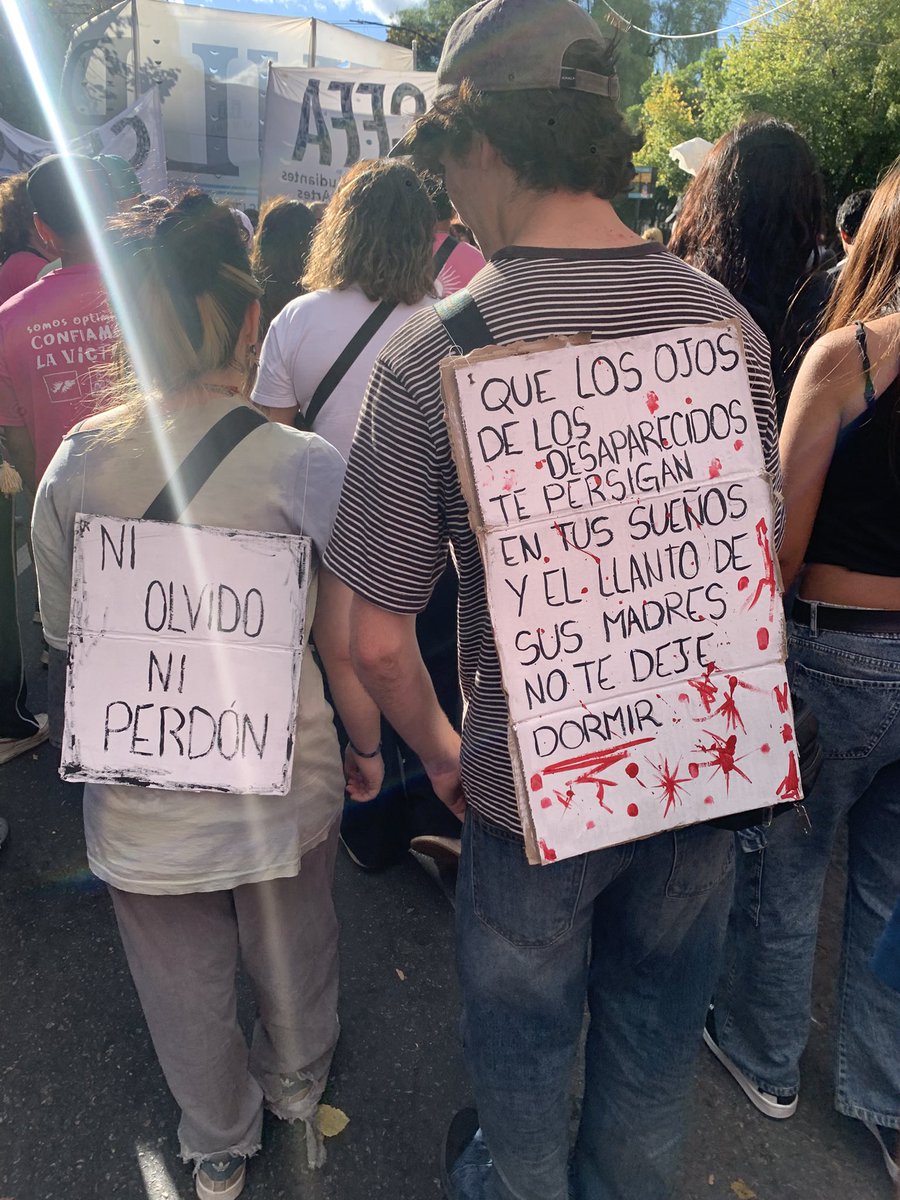 udiantes
Artes
SOMOS
CONFIAM
LA VICT
NI
OLVIDO
NI
PERDÓN
QUE LOS OJOS
DE LOS
DESAPARECIDOS
TE PERSIGAN
EN TUS SUEÑOS
Y EL LLANTO DE
SUS MADRES
NO TE DEJE
DORMIR